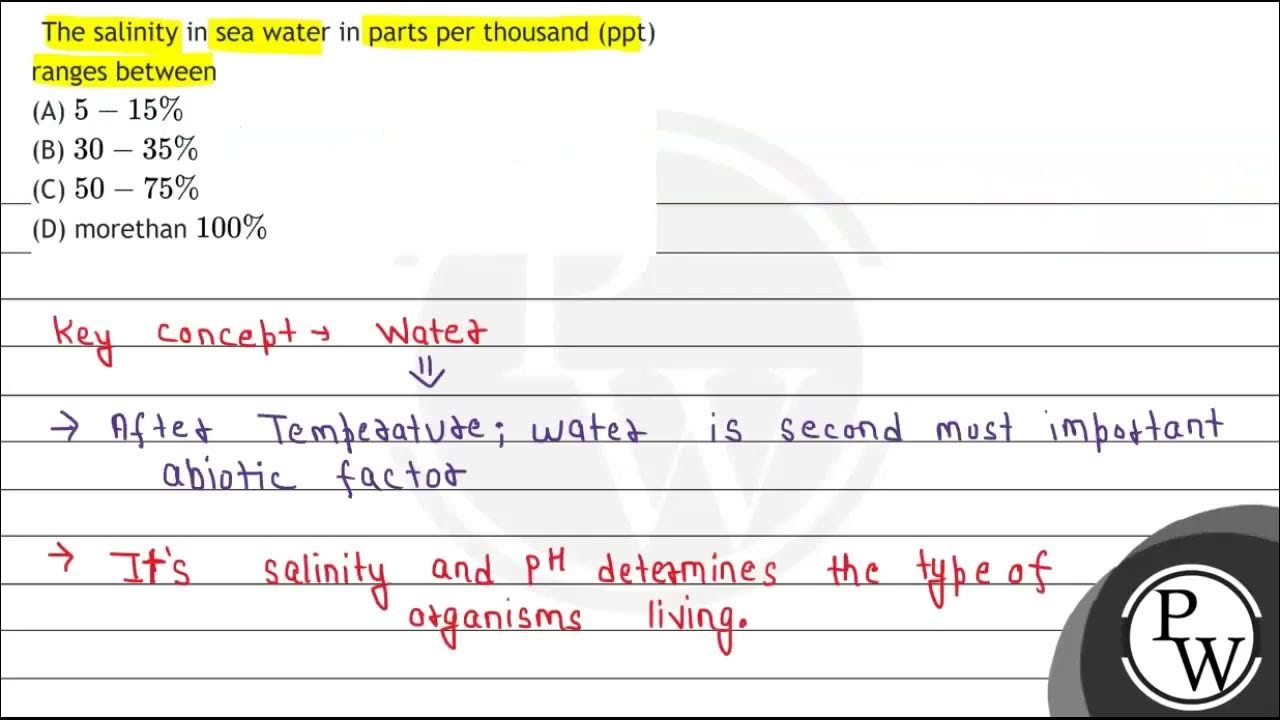 The salinity in sea water in parts per thousand (ppt)
ranges between
(A) 5 – 15%
(B) 30 – 35%
(C) 50 – 75%
(D) morethan 100%
Key concept → Water
→ After Temperature; water is second most important
abiotic factor
→ It's salinity and pH determines the type of
organisms living.
P
W
P
W